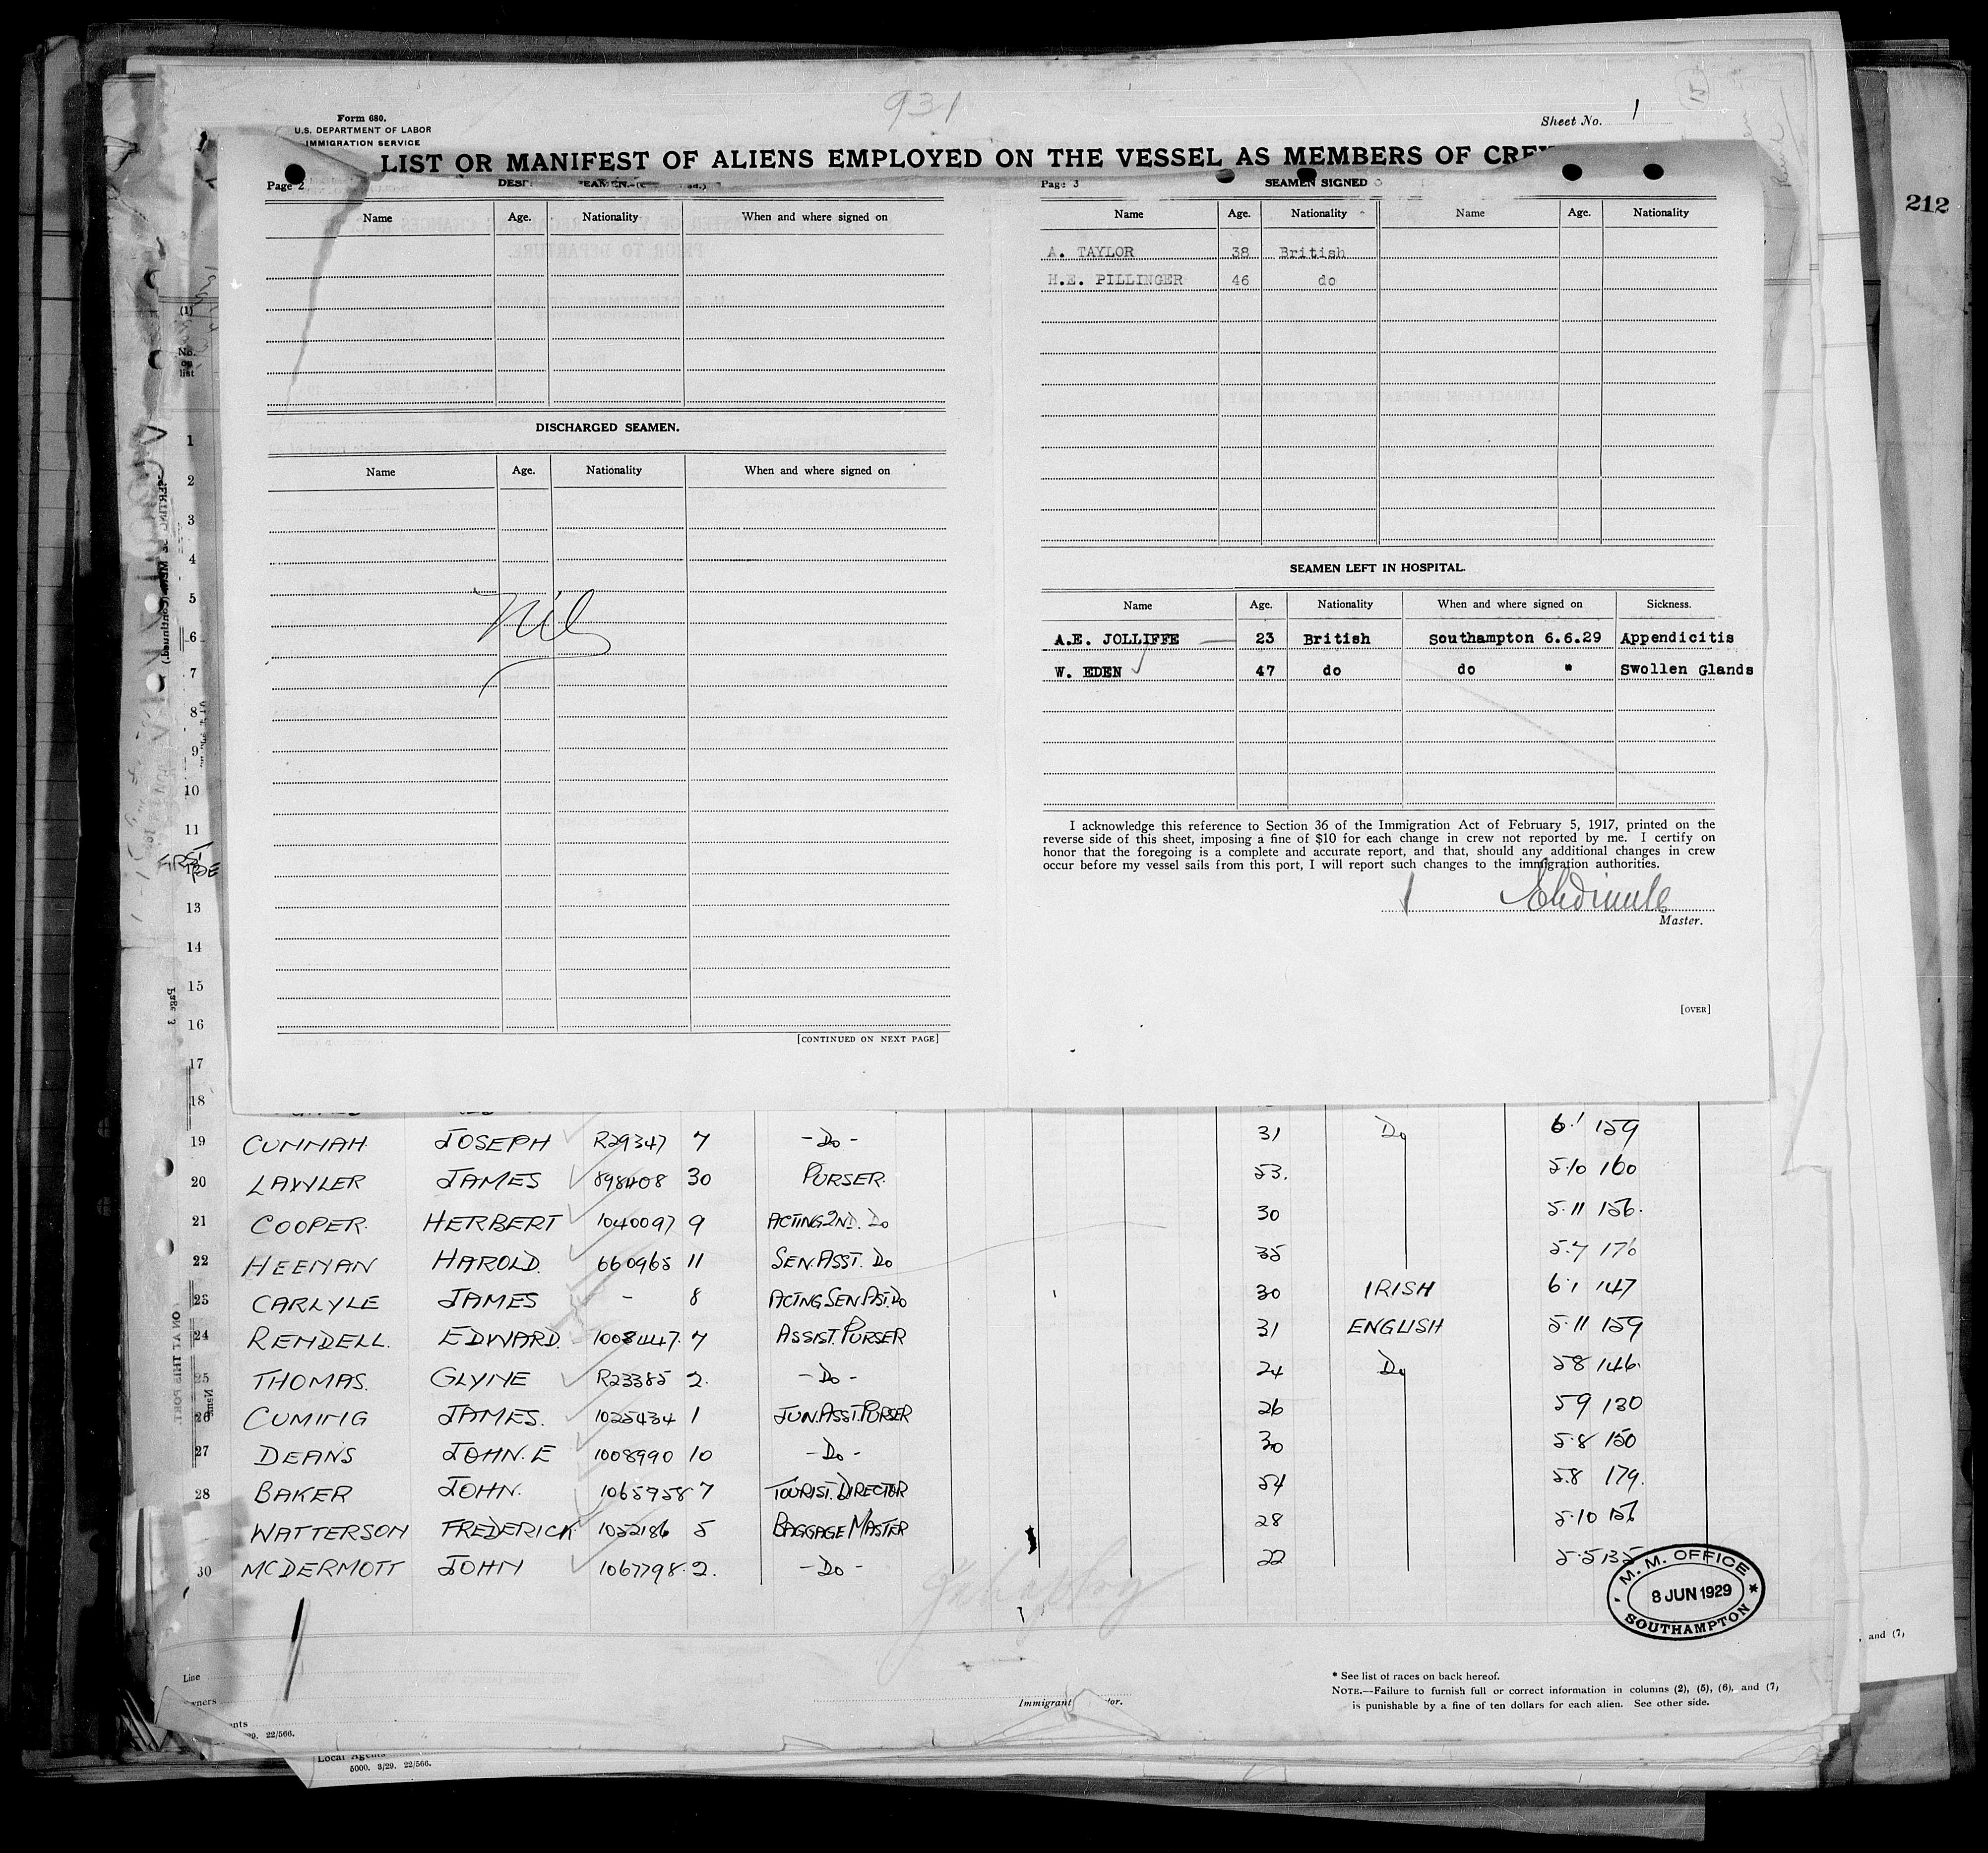 931
Form 680.
U.S. DEPARTMENT OF LABOR
IMMIGRATION SERVICE
Sheet No. 1
15
LIST OR MANIFEST OF ALIENS EMPLOYED ON THE VESSEL AS MEMBERS OF CREW
212
Page 2
Name Age. Nationality When and where signed on
DISCHARGED SEAMEN.
Name Age. Nationality When and where signed on
Nil
[CONTINUED ON NEXT PAGE]
Page 3 SEAMEN SIGNED
Name Age. Nationality Name Age. Nationality
A. TAYLOR 38 British
H.E. PILLINGER 46 do
SEAMEN LEFT IN HOSPITAL.
Name Age. Nationality When and where signed on Sickness.
A.E. JOLLIFFE 23 British Southampton 6.6.29 Appendicitis
W. EDEN 47 do do " Swollen Glands
I acknowledge this reference to Section 36 of the Immigration Act of February 5, 1917, printed on the
reverse side of this sheet, imposing a fine of $10 for each change in crew not reported by me. I certify on
honor that the foregoing is a complete and accurate report, and that, should any additional changes in crew
occur before my vessel sails from this port, I will report such changes to the immigration authorities.
Master.
[OVER]
(1)
No. on list
1
2
3
4
5
6
7
8
9
10
11
13
14
15
16
17
18
19 CUNNAH JOSEPH R29347 7 -Do- 31 Do 6.1 159
20 LAWLER JAMES 898408 30 PURSER 53. 5.10 160
21 COOPER. HERBERT 1040097 9 ACTING 2ND. Do 30 5.11 156.
22 HEENAN HAROLD. 660965 11 SEN. ASST. Do 35 5.7 176
23 CARLYLE JAMES - 8 ACTNG SEN AST. Do 30 IRISH 6.1 147
24 RENDELL. EDWARD. 1008447. 7 ASSIST. PURSER 31 ENGLISH 5.11 159
25 THOMAS. GLYNE R23385 2. -Do- 24 Do 5 8 146.
26 CUMING JAMES. 1025434 1 JUN. ASST. PURSER 26 5 9 130
27 DEANS JOHN. E 1008990 10 -Do- 30 5.8 150
28 BAKER JOHN. 1065958 7 TOURIST. DIRECTOR 54 5.8 179.
WATTERSON FREDERICK 1052186 5 BAGGAGE MASTER 28 5.10 156
30 MCDERMOTT JOHN 1067798. 2. -Do- 22 5.5 135
M. M. OFFICE
8 JUN 1929
SOUTHAMPTON
Line
* See list of races on back hereof.
NOTE.—Failure to furnish full or correct information in columns (2), (5), (6), and (7)
is punishable by a fine of ten dollars for each alien. See other side.
, and (7)
Immigrant
22/566.
Local Agents
5000. 3/29. 22/566.